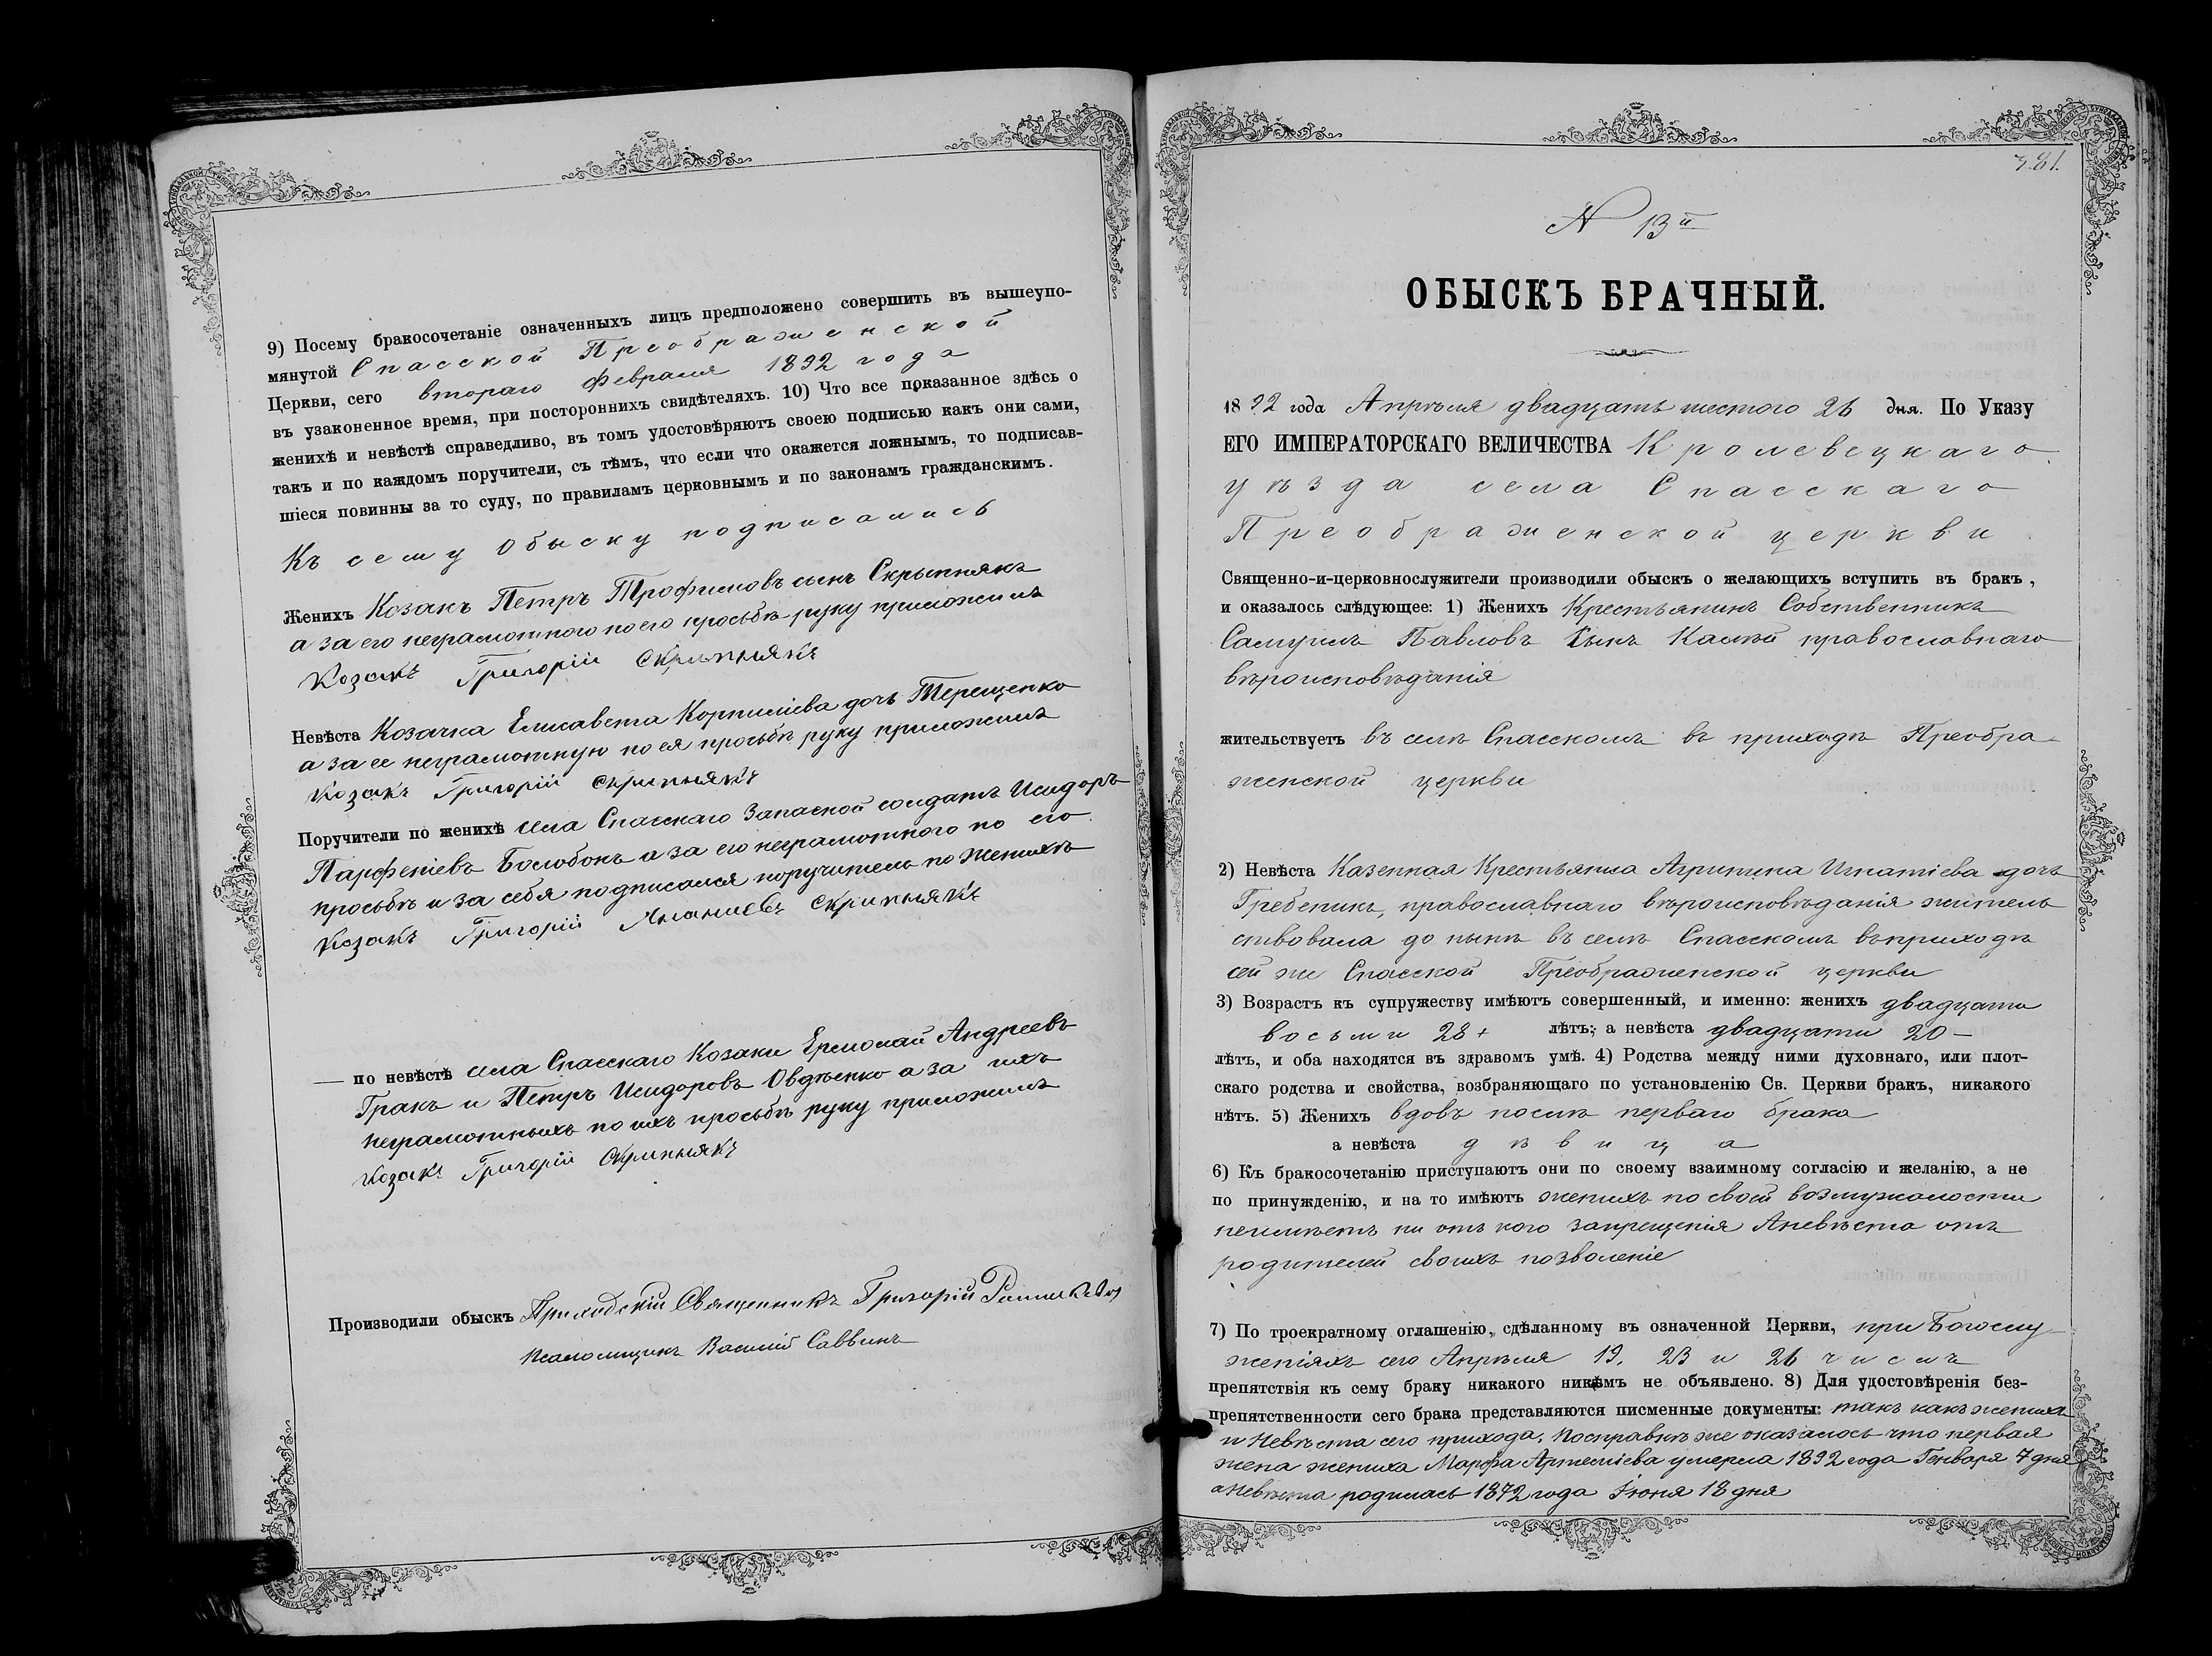 9) Посему бракосочетаніе означенныхъ лицъ предположено совершить въ вышеупо-
мянутой Спасской Преображенской
Церкви, сего втораго Февраля 1892 года
въ узаконенное время, при постороннихъ свидѣтеляхъ. 10) Что все показанное здѣсь о
женихѣ и невѣстѣ справедливо, въ томъ удостовѣряютъ своею подписью какъ они сами,
такъ и по каждомъ поручители, съ тѣмъ, что если что окажется ложнымъ, то подписав-
шіеся повинны за то суду, по правиламъ церковнымъ и по законамъ гражданскимъ.
Къ сему обыску подписались
Женихъ Козакъ Петръ Трофимовъ сынъ Скрыпнякъ
а за его неграмотного по его просьбѣ руку приложилъ
Козакъ Григорій Скрипнякъ
Невѣста Козачка Елисавета Корниліева дочь Терещенко
а за ее неграмотную по ея просьбѣ руку приложилъ
Козакъ Григорій Скрипнякъ
Поручители по женихѣ села Спасскаго Запасной солдатъ Исидоръ
Парфеніевъ Болобонъ а за его неграмотного по его
просьбѣ и за себя подписался поручитель по Женихѣ
Козакъ Григорій Ананиевъ Скрипнякъ
— по невѣстѣ села Спасскаго Козаки Ермолай Андреевъ
Гракъ и Петръ Исидоровъ Овдѣенко а за ихъ
неграмотныхъ по ихъ просьбѣ руку приложилъ
Козакъ Григорій Скрипнякъ
Производили обыскъ Приходскій Священникъ Григорій
Псаломщикъ Василій Саввинъ
381.
N 13й
ОБЫСКЪ БРАЧНЫЙ.
1892 года Апрѣля двадцать шестого 26 дня. По Указу
ЕГО ИМПЕРАТОРСКАГО ВЕЛИЧЕСТВА Кролевецкаго
уѣзда села Спасскаго
Преображенской церкви
Священно-и-церковнослужители производили обыскъ о желающихъ вступить въ бракъ,
и оказалось слѣдующее: 1) Женихъ Крестьянинъ Собственникъ
Самуилъ Павловъ сынъ Калѣй православнаго
вѣроисповѣданія
жительствуетъ въ селѣ Спасскомъ въ приходѣ Преобра-
женской церкви
2) Невѣста Казенная Крестьянка Агрипина Игнатіева дочь
Гребеникъ, православнаго вѣроисповѣданія житель
ствовала до нынѣ въ селѣ Спасскомъ въ приходѣ
сей же Спасской Преображенской церкви
3) Возрастъ къ супружеству имѣютъ совершенный, и именно: женихъ двадцати
восьми 28 + лѣтъ; а невѣста двадцати 20 —
лѣтъ, и оба находятся въ здравомъ умѣ. 4) Родства между ними духовнаго, или плот-
скаго родства и свойства, возбраняющаго по установленію Св. Церкви бракъ, никакого
нѣтъ. 5) Женихъ вдовъ послѣ перваго брака
а невѣста дѣвица
6) Къ бракосочетанію приступаютъ они по своему взаимному согласію и желанію, а не
по принужденію, и на то имѣютъ женихъ по своей возмужалости
неимѣетъ ни отъ кого запрещенія Аневѣста отъ
родителей своихъ позволеніе
7) По троекратному оглашенію, сдѣланному въ означенной Церкви, при Богослу-
женіяхъ сего Апрѣля 19, 23 и 26 числъ
препятствія къ сему браку никакого никѣмъ не объявлено. 8) Для удостовѣренія без-
препятственности сего брака представляются писменные документы: такъ какъ женихъ
и Невѣста сего прихода, посправкѣ же оказалось что первая
жена жениха Марфа Артеміева умерла 1892 года Генваря 7 дня
аневѣста родилась 1872 года Іюня 18 дня